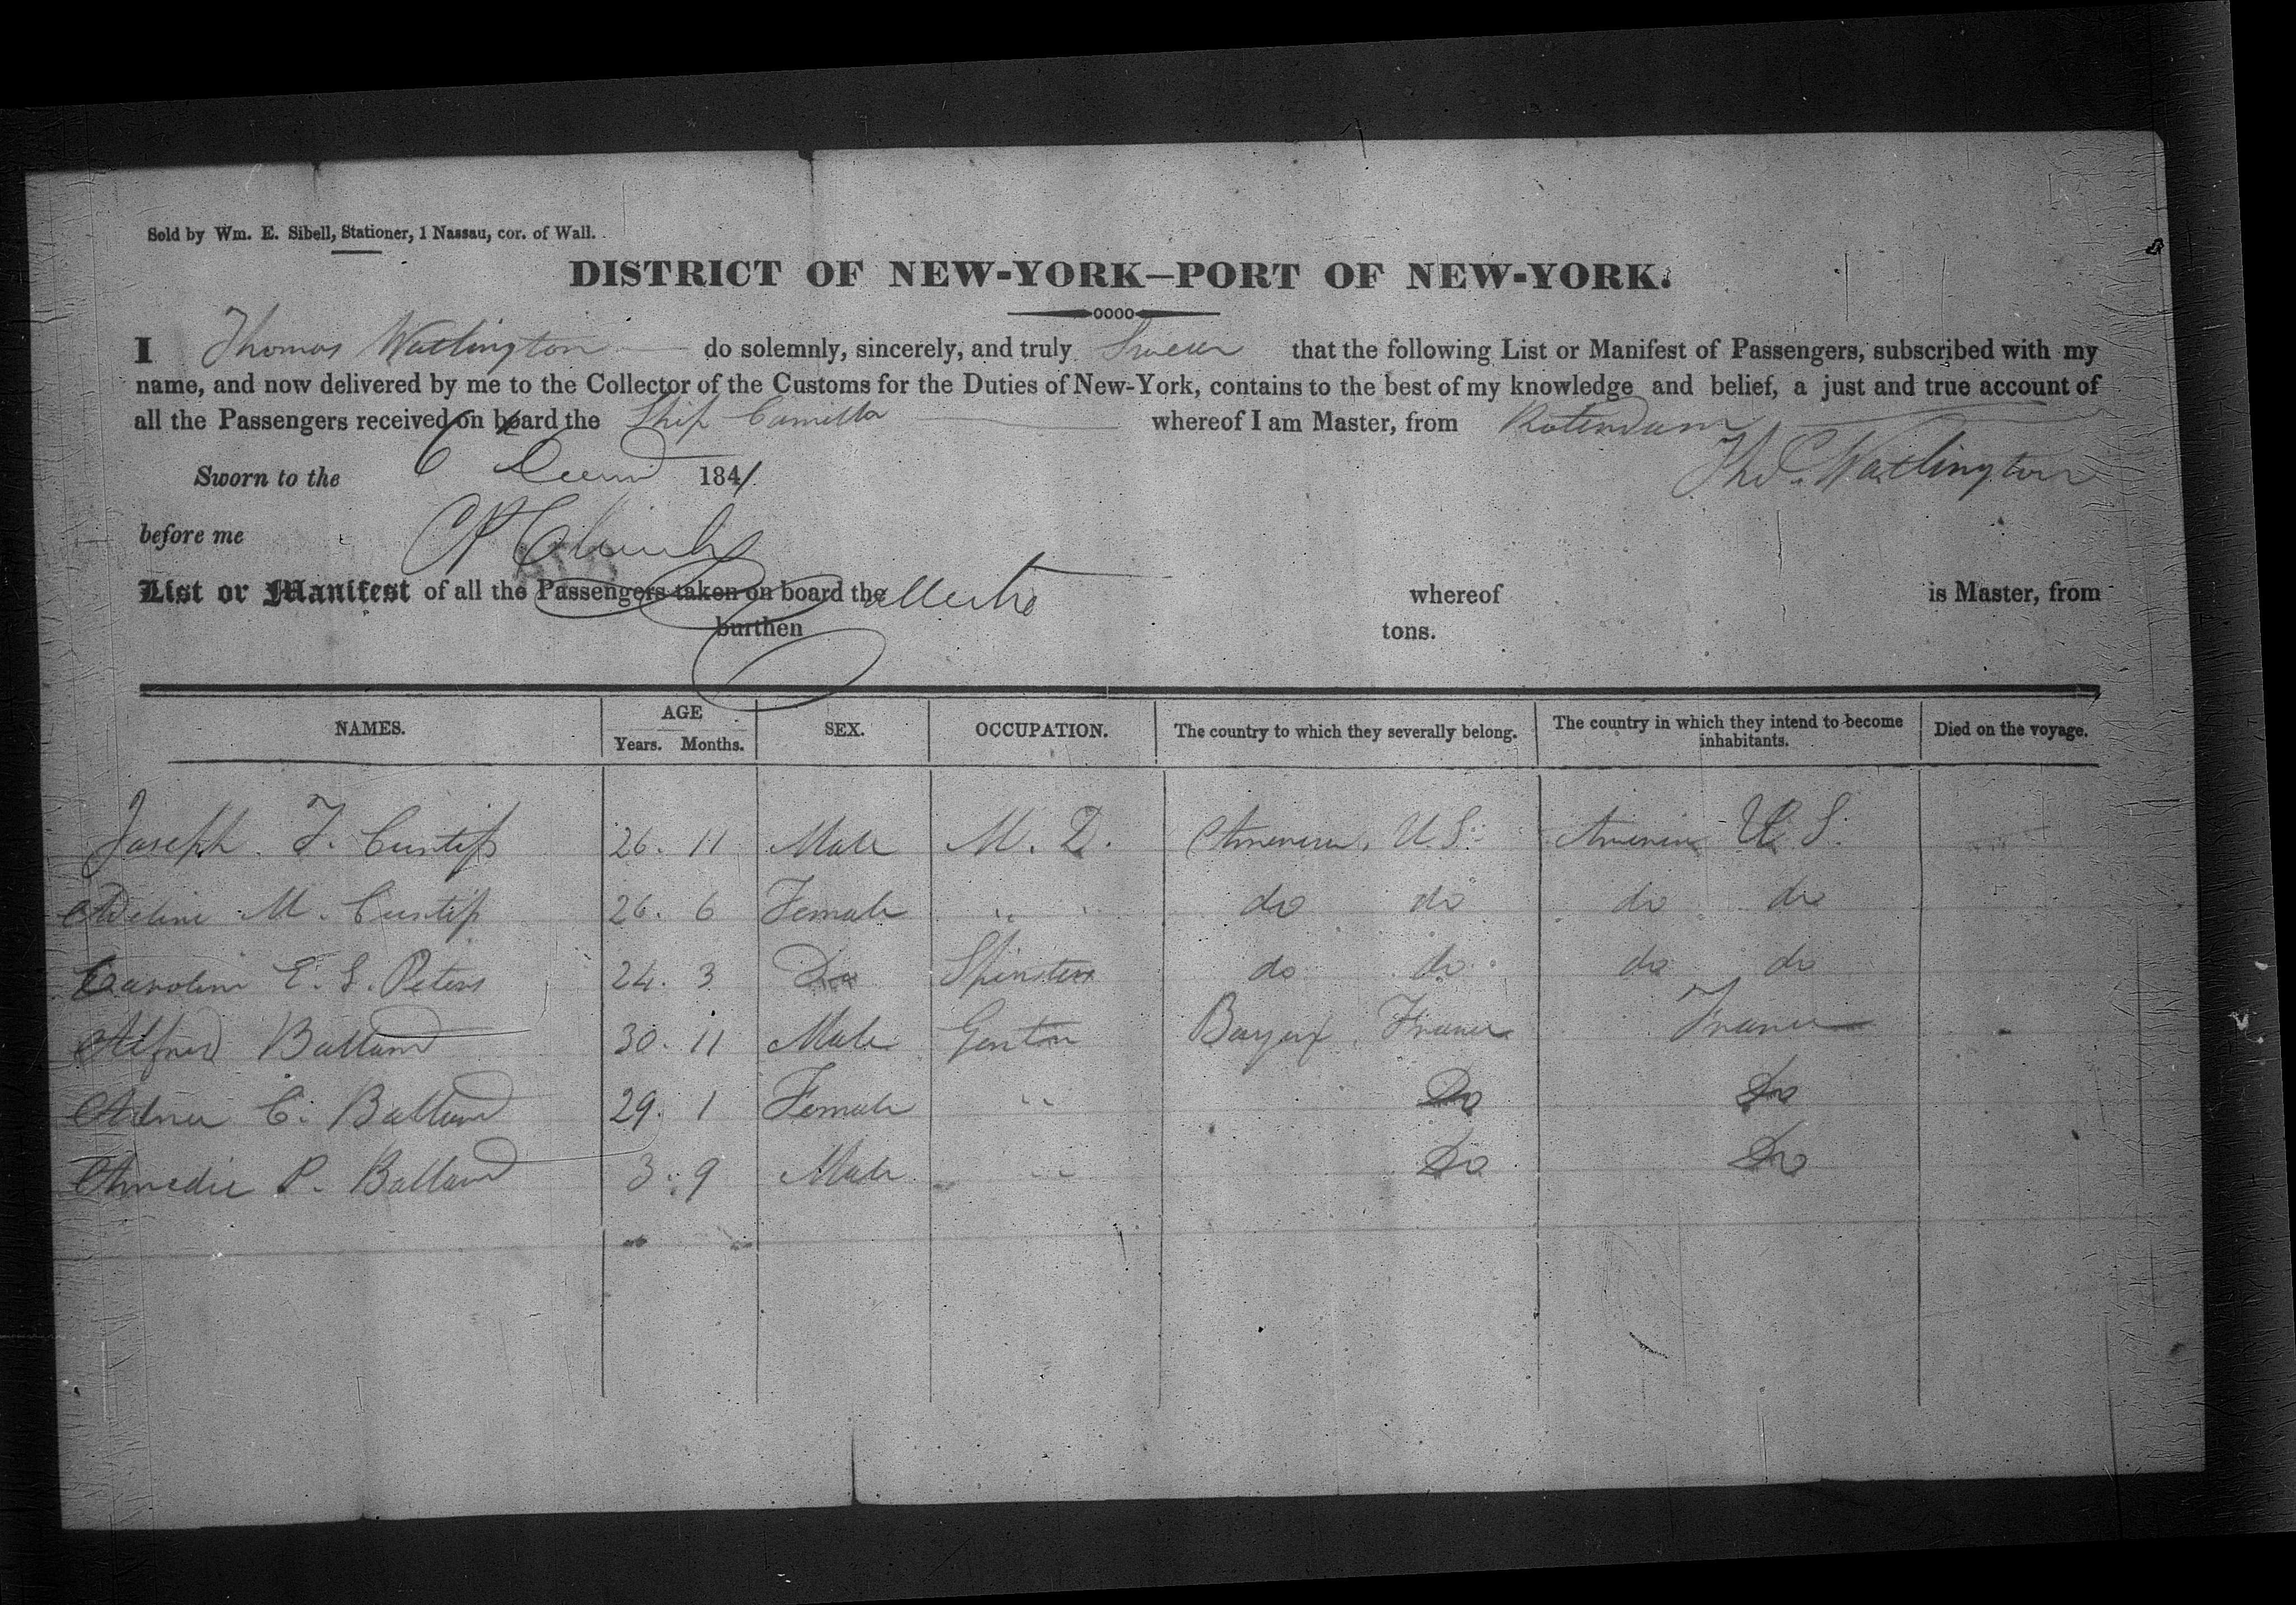 Sold by Wm. E. Sibell, Stationer, 1 Nassau, cor. of Wall.
DISTRICT OF NEW-YORK—PORT OF NEW-YORK.
I Thomas Watlington do solemnly, sincerely, and truly Swear that the following List or Manifest of Passengers, subscribed with my
name, and now delivered by me to the Collector of the Customs for the Duties of New-York, contains to the best of my knowledge and belief, a just and true account of
all the Passengers received on board the Ship Camilla whereof I am Master, from Roterdam
Sworn to the 6 1841 Tho. Watlington
before me
List or Manifest of all the Passengers taken on board the whereof is Master, from
burthen tons.
NAMES. AGE Years. Months. SEX. OCCUPATION. The country to which they severally belong. The country in which they intend to become inhabitants. Died on the voyage.
Joseph T. Curtiss 26. 11 Male M. D. America, U. S. America U. S.
Adeline M. Curtiss 26. 6 Female " " do do do do
Caroline E. S. Peters 24. 3 Do Spinster do do do do
Alfred Balland 30. 11 Male Gentn France France
C. Balland 29. 1 Female " Do Do
Amedie P. Balland 3. 9 Male " Do Do